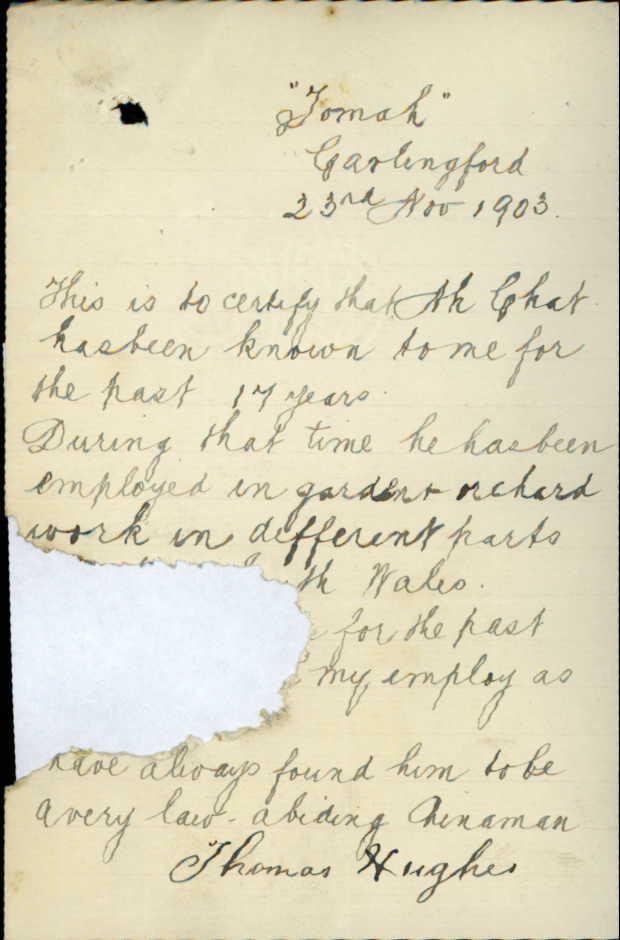 "Tomah"
Carlingford
23rd Nov 1903.
This is to certify that Ah Chat
has been known to me for
the past 17 years.
During that time he has been
employed in garden + orchard
work in different parts
th Wales.
for the past
my employ as
have always found him to be
a very law-abiding Chinaman
Thomas Hughes